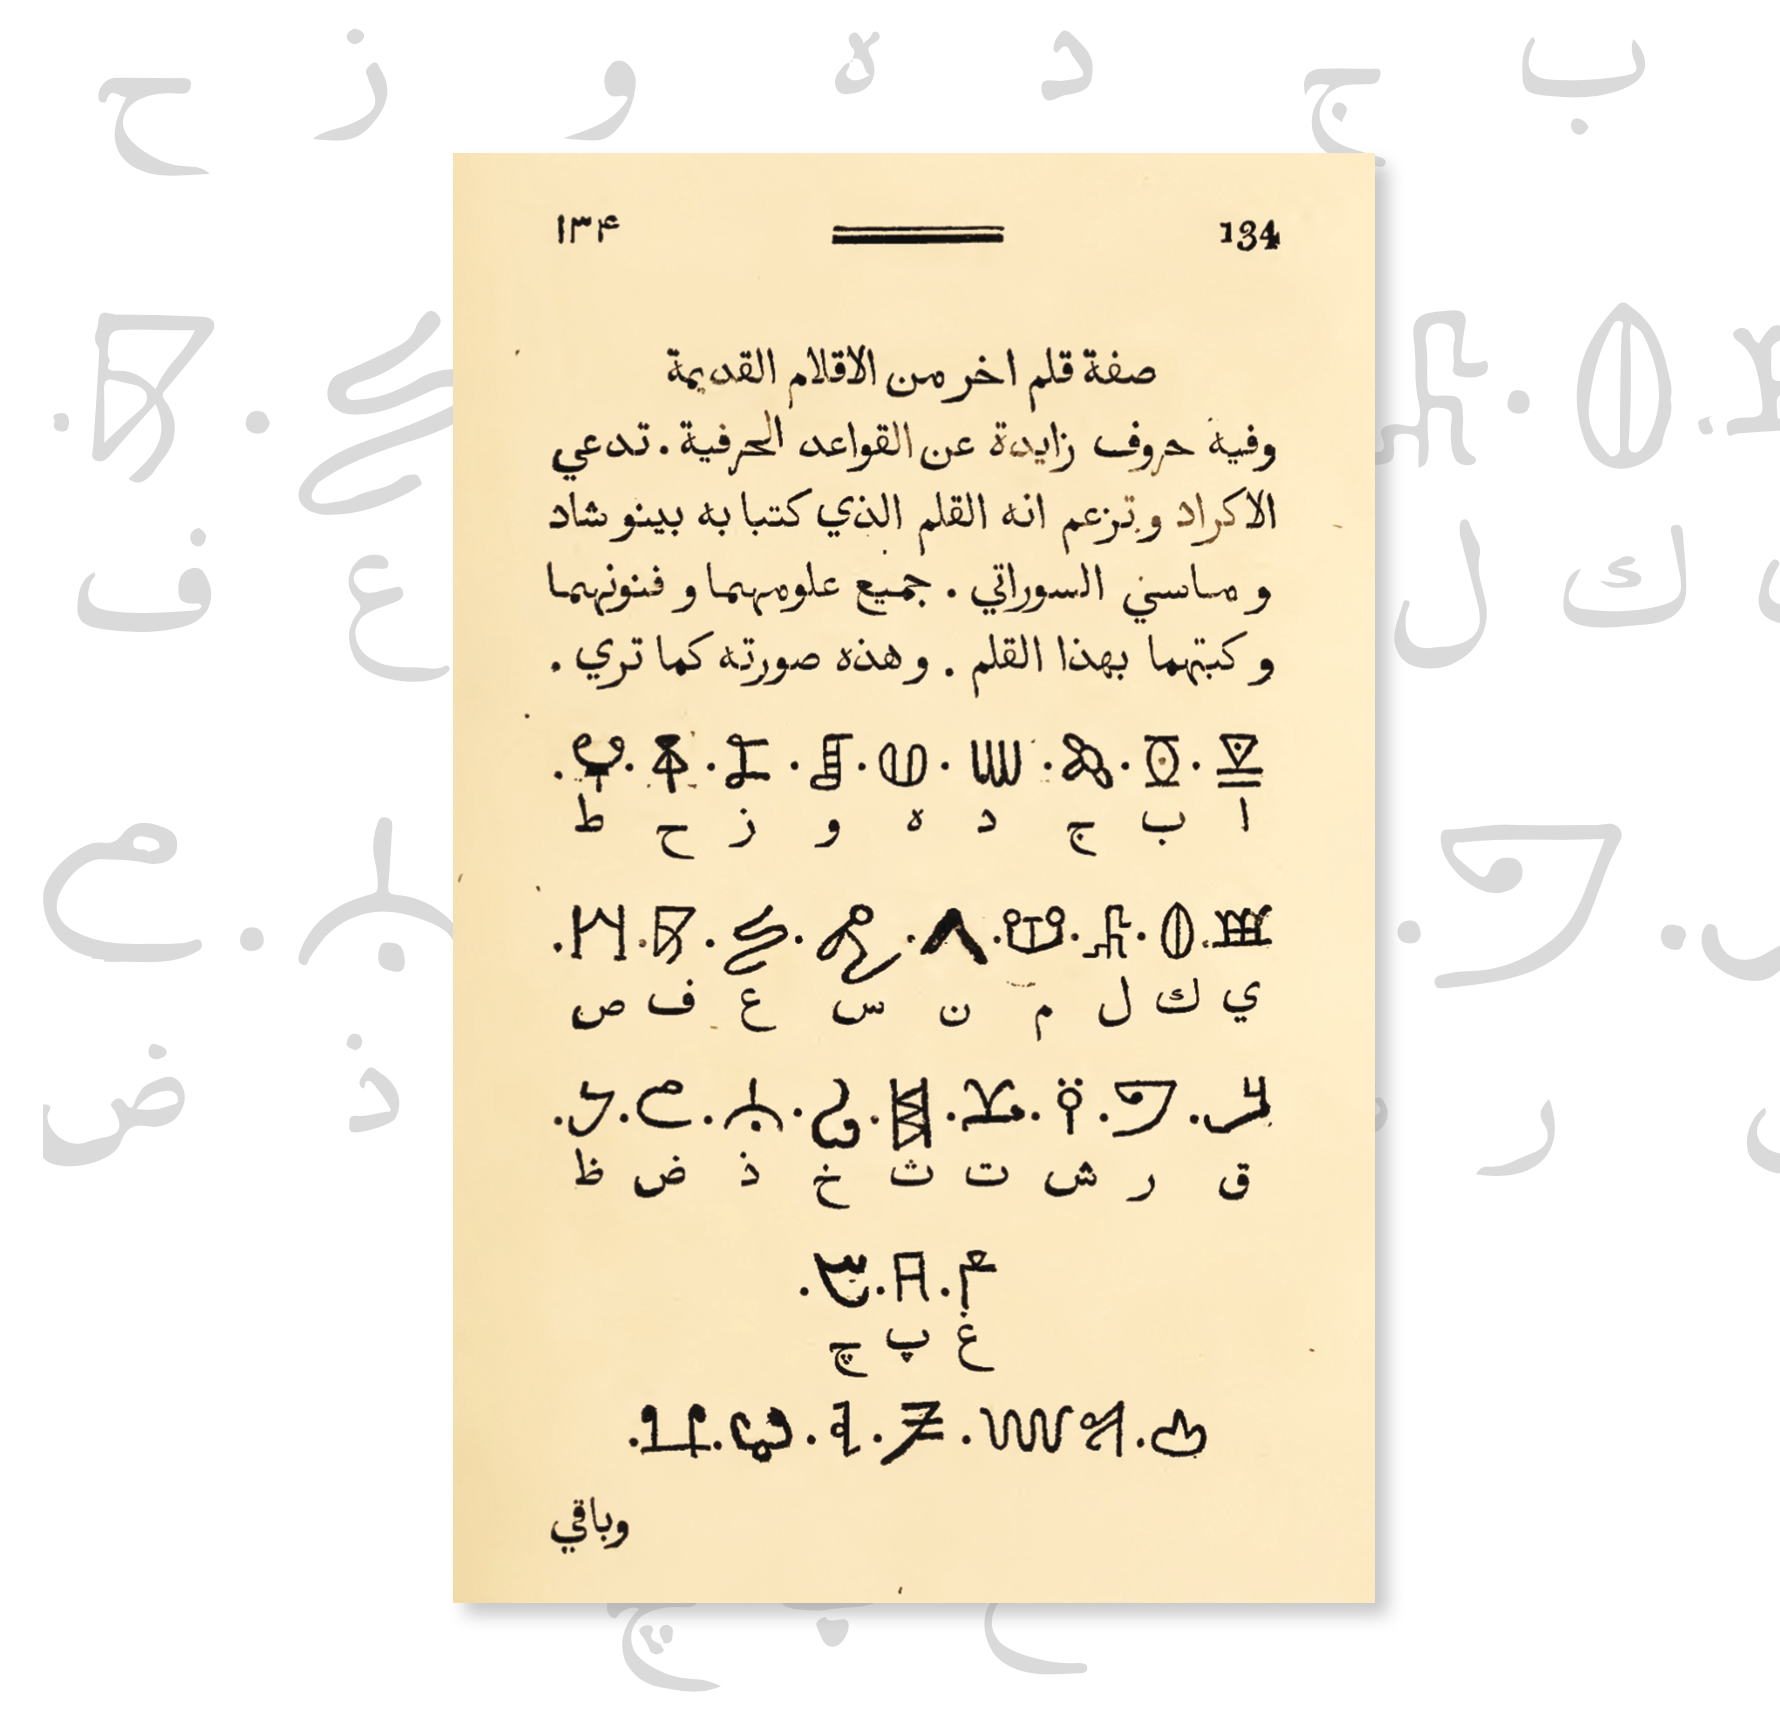 ب ج د ه و ز ح
١٣۴ 134
صفة قلم اخر من الاقلام القديمة
وفيه حروف زايدة عن القواعد الحرفية . تدعي
الاكراد وتزعم انه القلم الذي كتبا به بينو شاد
و ماسي السوراتي . جميع علومهما و فنونهما
و كبتهما بهذا القلم . وهذه صورته كما تري .
ا ب ج د ه و ز ح ط
ي ك ل م ن س ع ف ص
ق ر ش ت ث خ ذ ض ظ
غ پ چ
وباقي
ك ل ع ف
ر ذ ض